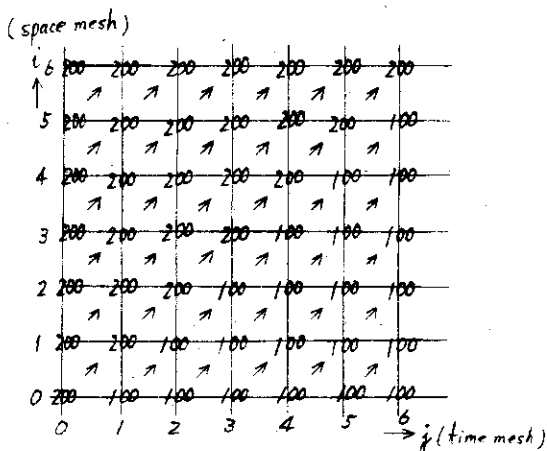 (space mesh)
i
6 200 200 200 200 200 200 200
5 200 200 200 200 200 200 100
4 200 200 200 200 200 100 100
3 200 200 200 200 100 100 100
2 200 200 200 100 100 100 100
1 200 200 100 100 100 100 100
0 200 100 100 100 100 100 100
0 1 2 3 4 5 6
j (time mesh)